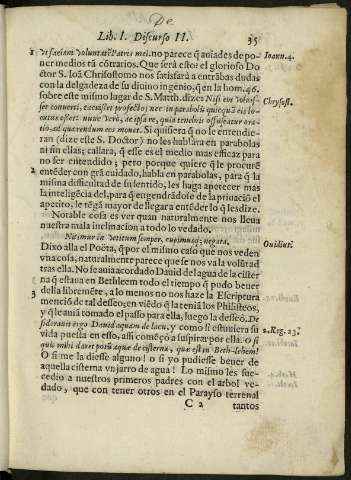 De
Lib. I. Discurso II. 35
1 Vt faciam voluntatē Patris mei. no parece q̃ auiades de po- Ioann. 4.
ner medios tā cōtrarios. Que será esto? el glorioso Do
ctor S. Ioā Chrisostomo nos satisfará a entrābas dudas
con la delgadeza de su diuino ingenio, q̃ en la hom. 46.
sobre este mismo lugar de S. Matth. dize: Nisi eos voluis- Chrysost.
ser conuerti, excussisset profecto; nec in parabolis quicquā eis lo
cutus esset: nunc verò, ex ipsa re, quia tenebris offuscatur ora-
tio, ad quærendum eos mouet. Si quisiera q̃ no le entendie-
ran (dize este S. Doctor) no les hablàra en parabolas
ni sin ellas; callara, q̃ esse es el medio mas eficaz para
no ser entendido; pero porque quiere q̃ le procurē
2 entēder con grā cuidado, habla en parabolas, para q̃ la
misma difficultad de su sentido, les haga apetecer mas
la inteligēcia del, para q̃ engendrādose de la priuació el
apetito, le tēgā mayor de llegar a entēder lo q̃ les dize.
Notable cosa es ver quan naturalmente nos lleua
nuestra mala inclinacion a todo lo vedado.
Nitimur in vetitum semper, cupimusq; negata. Ouidiuſ.
Dixo alla el Poëta, q̃ por el mismo caso que nos veden
vna cosa, naturalmente parece que se nos va la volūtad
tras ella. No se auia acordado Dauid del agua de la cister
na q̃ estaua en Bethleem todo el tiempo q̃ pudo beuer
della libremēte, a lo menos no nos haze la Escriptura
3 menció de tal desseo; en viēdo q̃ la teniā los Philisteos,
y q̃ le auiā tomado el passo para ella, luego la desseó. De
siderauit ergo Dauid aquam de lacu, y como si estuuiera su 2. Reg. 23.
vida puesta en esso, assi començo a suspirar por ella. O si
quis mihi daret potū aquæ de cisterna, quæ est in Beth-lehem!
O si me la diesse alguno! o si yo pudiesse beuer de
aquella cisterna vn jarro de agua! Lo mismo les suc-
cedio a nuestros primeros padres con el arbol ve-
dado, que con tener otros en el Parayso terrenal
C 2 tantos